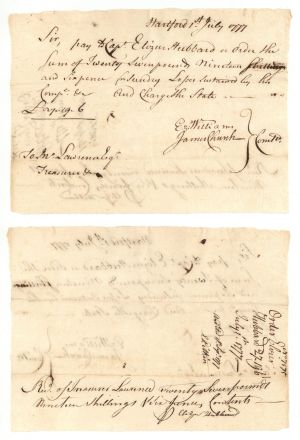 Hartford 1st July 1777
Sir, pay to Capt Elizur Hubbard or Order the
Sum of Twenty Seven pounds Nineteen Shillings
and Sixpence for Sundry Losses Sustained by his
Compy &c And Charge the State
Ez Williams
James Church Comtee
To Jno Lawrence Esqr
Treasurer &c
Order
Elizur
Hubbard
July 1st 1777
Recd of Treasurer Lawrence twenty Seven pounds
Nineteen Shillings & Six pence Contents
Elizur Hubbard